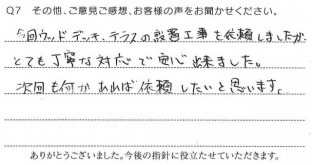 Q7 その他、ご意見ご感想、お客様の声をお聞かせください。
今回ウッドデッキ、テラスの設置工事を依頼しましたが
とても丁寧な対応で安心出来ました。
次回も何かあれば依頼したいと思います。
ありがとうございました。今後の指針に役立たせていただきます。